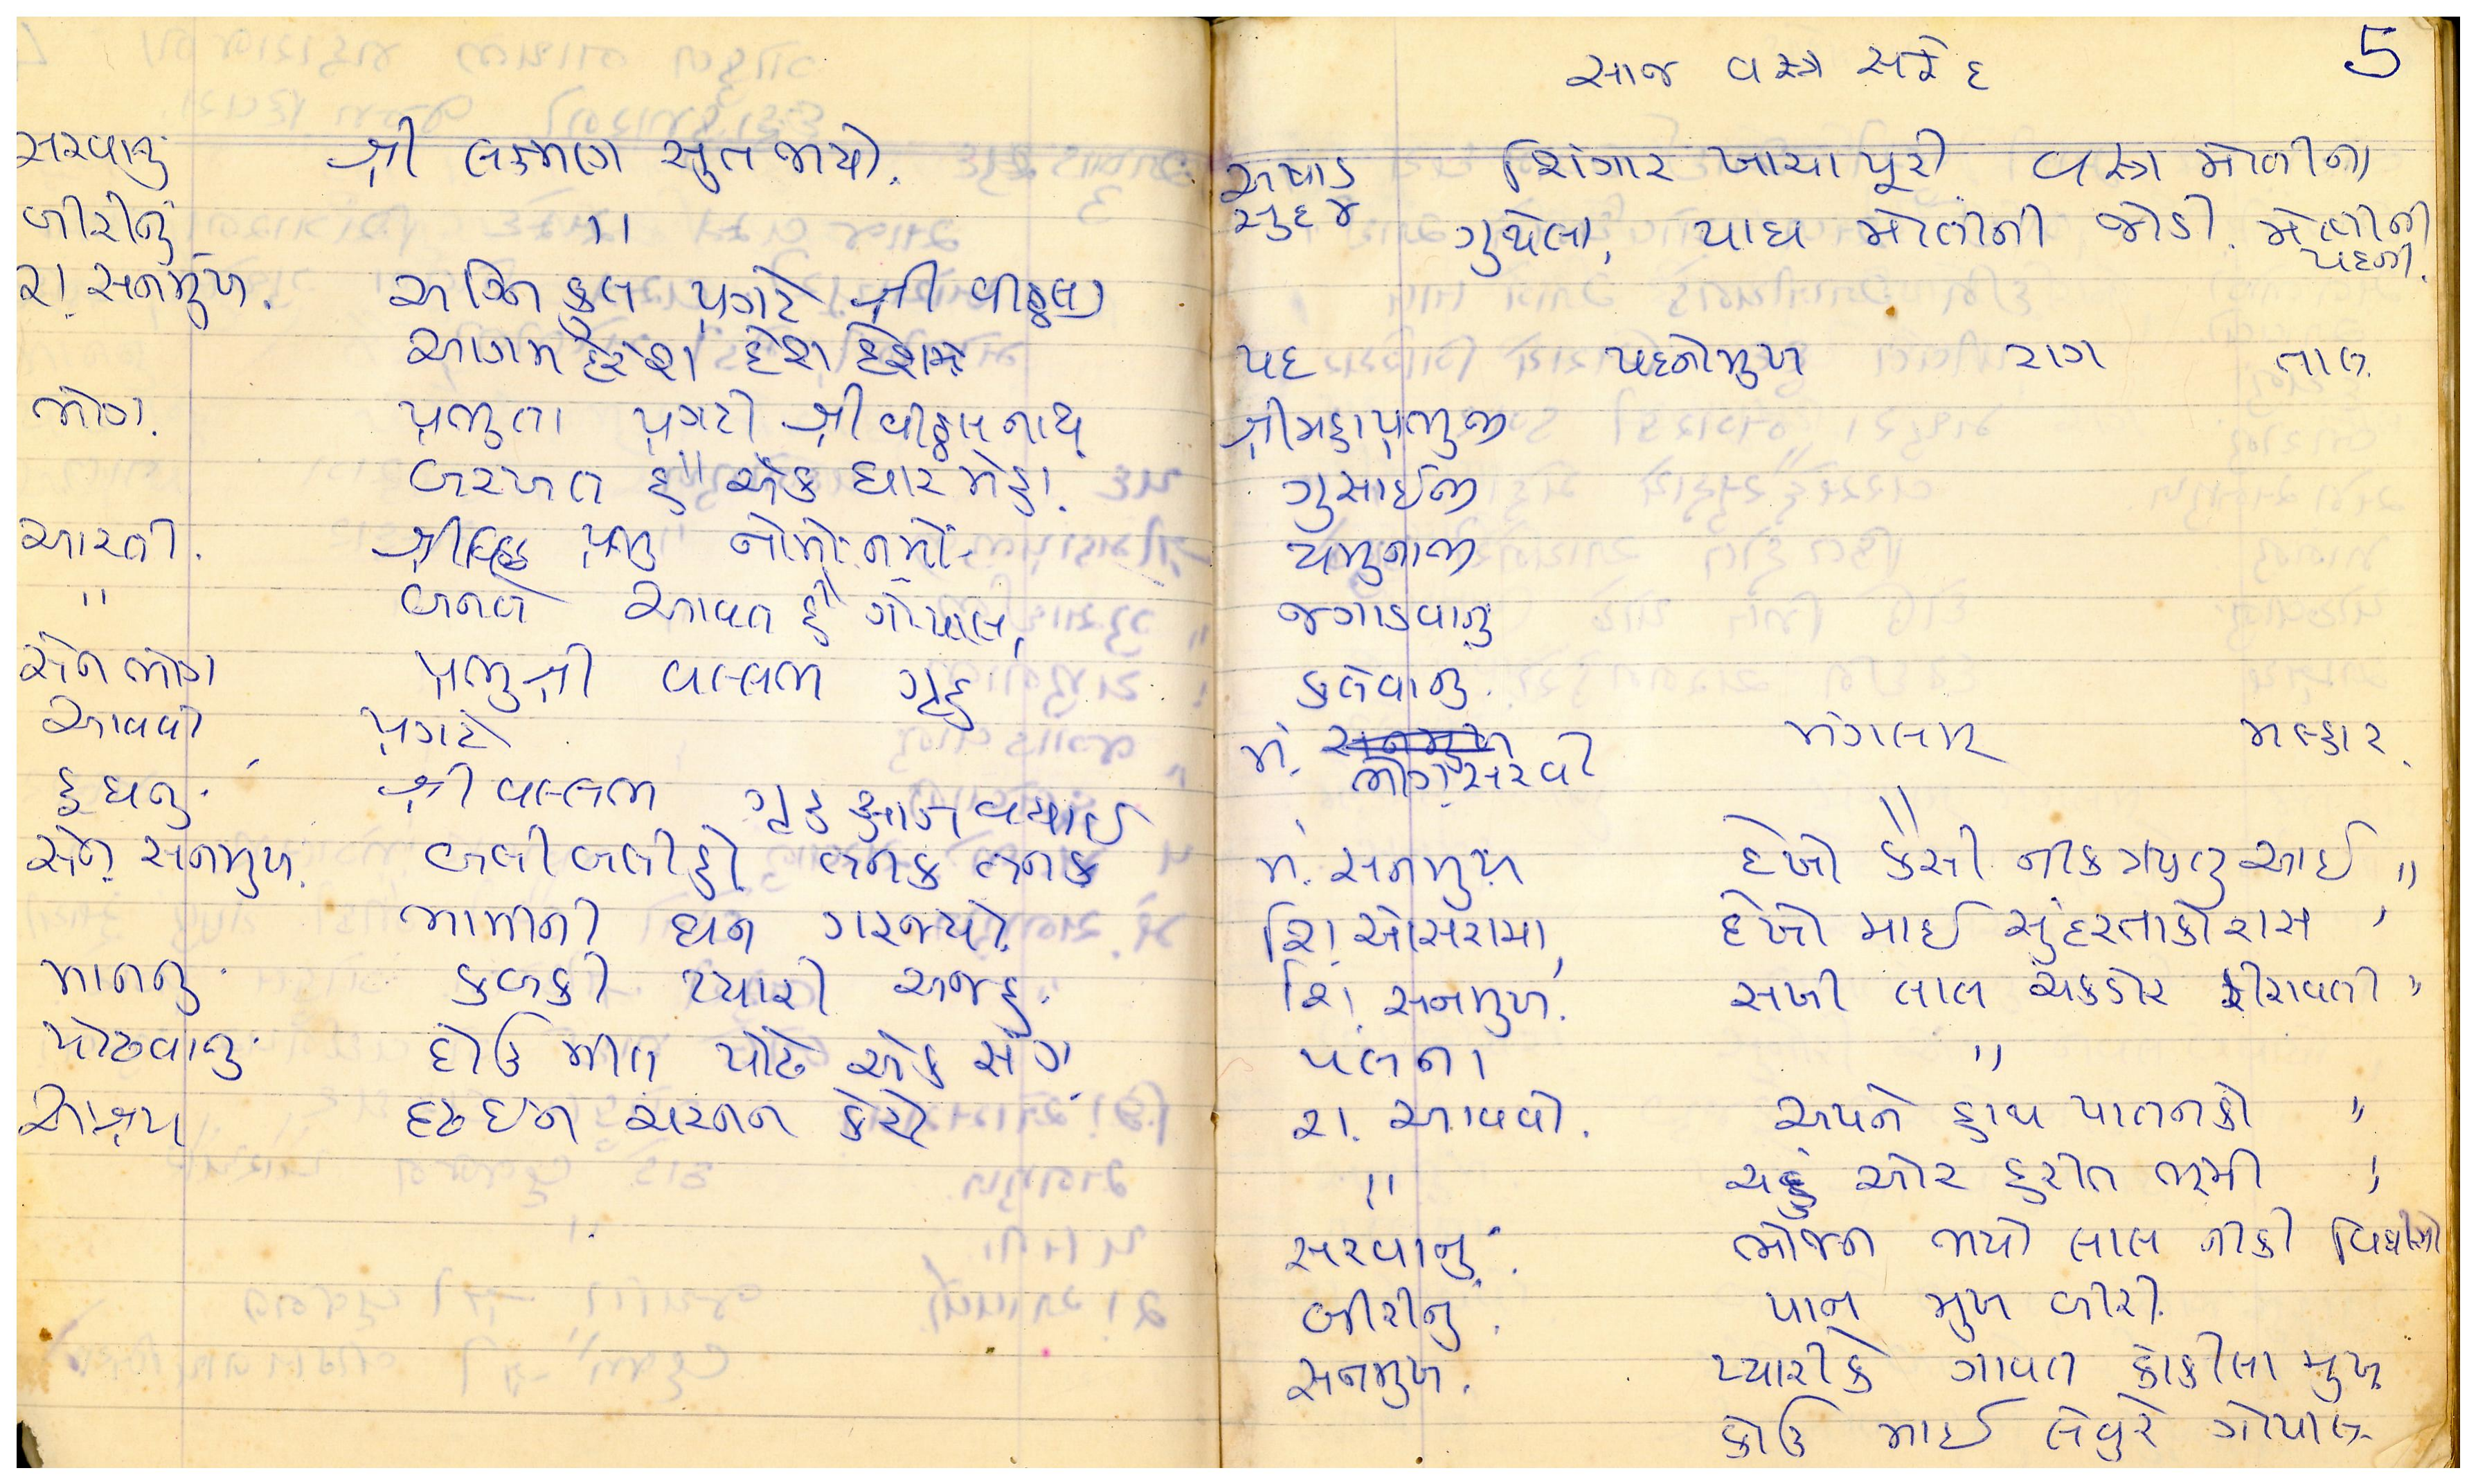 સરવાનુ શ્રી લક્ષ્મણ સુત જાયો.
બીરીનું "
રા. સનમુખ. અગ્નિ કુલ પ્રગટે શ્રી વીઠ્ઠલ
આગમ દેશ દેશમે
ભોગ. પ્રભુતા પ્રગટી શ્રી વીઠ્ઠલનાથ
બરખત હૈ એક ધાર મેહા.
આરતી. પ્રભુ નોમો નમો
" બનતે આવત હૈ ગોપાલ,
સેન ભોગ પ્રભુશ્રી વલ્લભ ગૃહ
આવવો પ્રગટે
દુધનુ. શ્રી વલ્લભ ગૃહ આજ બધાઈ
સેન સનમુખ. બલીબલીહો તનક તનક
ભામીની ઘન ગરજ્યો.
માનનુ. કબકી પ્યારી અજહુ.
પોઢવાનુ. દોઉ મીત પોઢે એક સંગ.
આશ્રય દ્રઢ ઇન ચરનન કેરો
5
સાજ વસ્ત્ર સફેદ
અષાડ શિંગાર ખાચાપૂરી વસ્ત્ર મોતીના
સુદ ૪ ગુથેલા, પાઘ મોતીની જોડી. મોતીની
પદની.
પદ પદનોમુખ રાગ તાલ.
શ્રીમહાપ્રભુજી
ગુસાઈજી
યમુનાજી
જગાડવાનુ
કલેવાનુ.
મં. ભોગ સરવો મંગલમ મલ્હાર.
"
મં. સનમુખ દેખો કૈસી નીક ઋતુ આઈ "
શિ. ઓસરામા, દેખો માઈ સુંદરતાકો રાસ "
શિ. સનમુખ. સખી લાલ ચકડોર ફીરાવતી "
પલના "
રા. આવવો. અપને હાથ પાતનકો "
" ચહુ ઓર હરીત ભૂમી "
સરવાનુ. ભોજન ભયો લાલ નીકી વિધીસો
બીરીનુ. પાન મુખ બીરી.
સનમુખ. પ્યારીકે ગાવત કોકીલા મુખ
કોઉ માઈ લેવુરે ગોપાલ